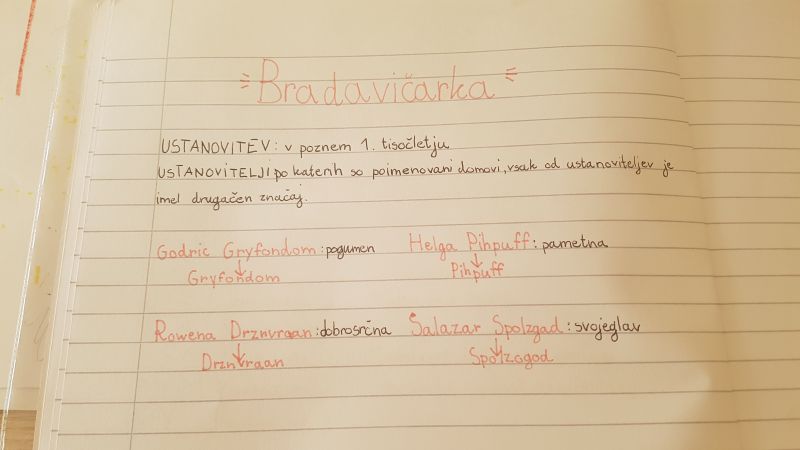 Bradavičarka
USTANOVITEV: v poznem 1. tisočletju
USTANOVITELJI po katerih so poimenovani domovi, vsak od ustanoviteljev je
imel drugačen značaj.
Godric Gryfondom: pogumen Helga Pihpuff: pametna
Gryfondom Pihpuff
Rowena Drznvraan: dobrosrčna Salazar Spolzgad: svojeglav
Drznvraan Spolzgod